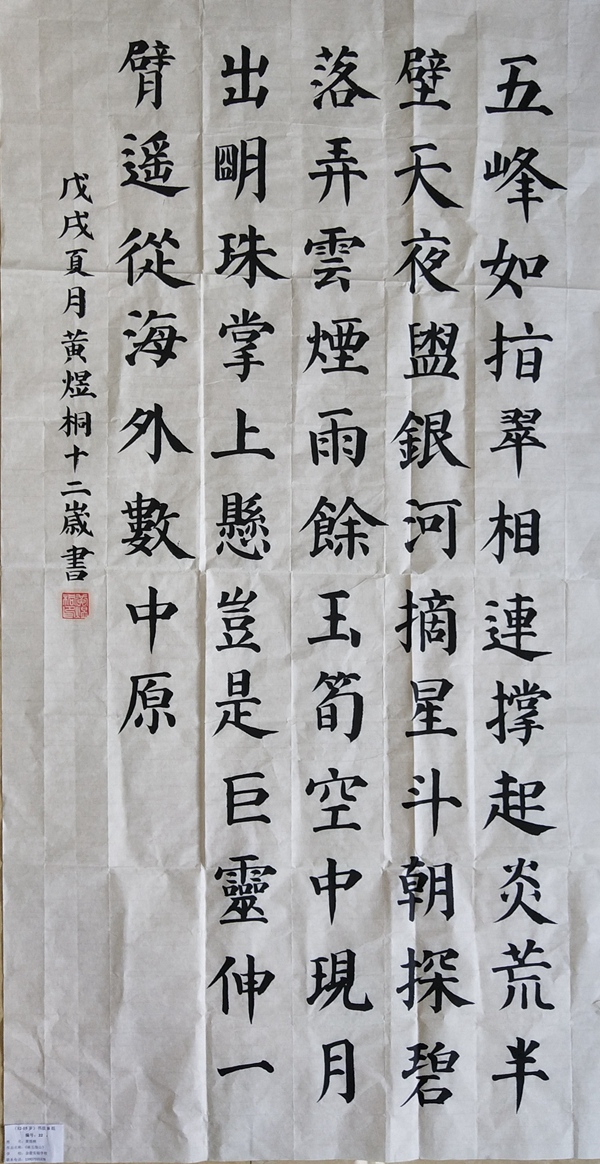 五峰如指翠相連撐起炎荒半
壁天夜盥銀河摘星斗朝探碧
落弄雲煙雨餘玉筍空中現月
出朙珠掌上懸豈是巨靈伸一
臂遥從海外數中原
戊戌夏月黃煜桐十二嵗書